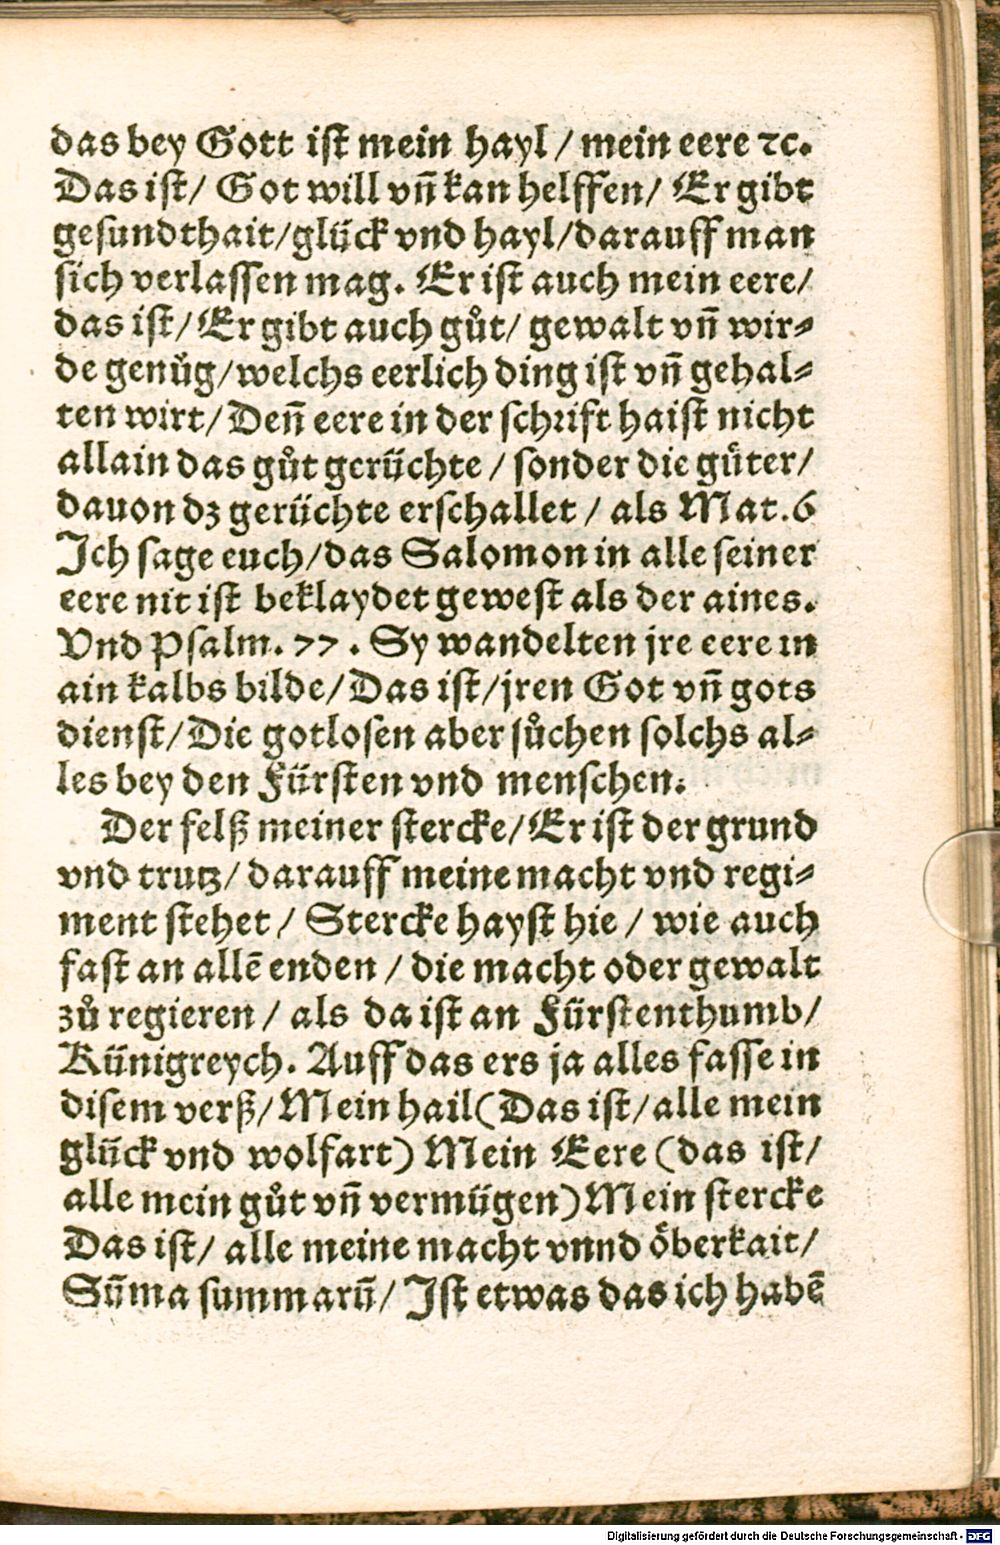 das bey Gott ist mein hayl / mein eere ꝛc.
Das ist / Got will vñ kan helffen / Er gibt
gesundthait / glück vnd hayl / darauff man
sich verlassen mag. Er ist auch mein eere /
das ist / Er gibt auch gůt / gewalt vñ wir⸗
de genůg / welchs eerlich ding ist vñ gehal⸗
ten wirt / Deñ eere in der schrift haist nicht
allain das gůt gerüchte / sonder die güter /
dauon dz gerüchte erschallet / als Mat. 6
Ich sage euch / das Salomon in alle seiner
eere nit ist beklaydet gewest als der aines.
Vnd Psalm. 77. Sy wandelten jre eere in
ain kalbs bilde / Das ist / jren Got vñ gots
dienst / Die gotlosen aber sůchen solchs al⸗
les bey den Fürsten vnd menschen.
Der felß meiner stercke / Er ist der grund
vnd trutz / darauff meine macht vnd regi⸗
ment stehet / Stercke hayst hie / wie auch
fast an allē enden / die macht oder gewalt
zů regieren / als da ist an Fürstenthumb /
Künigreych. Auff das ers ja alles fasse in
disem verß / Mein hail (Das ist / alle mein
glück vnd wolfart) Mein Eere (das ist /
alle mein gůt vñ vermügen) Mein stercke
Das ist / alle meine macht vnnd öberkait /
Sūma summarū / Ist etwas das ich habē
Digitalisierung gefördert durch die Deutsche Forschungsgemeinschaft - DFG